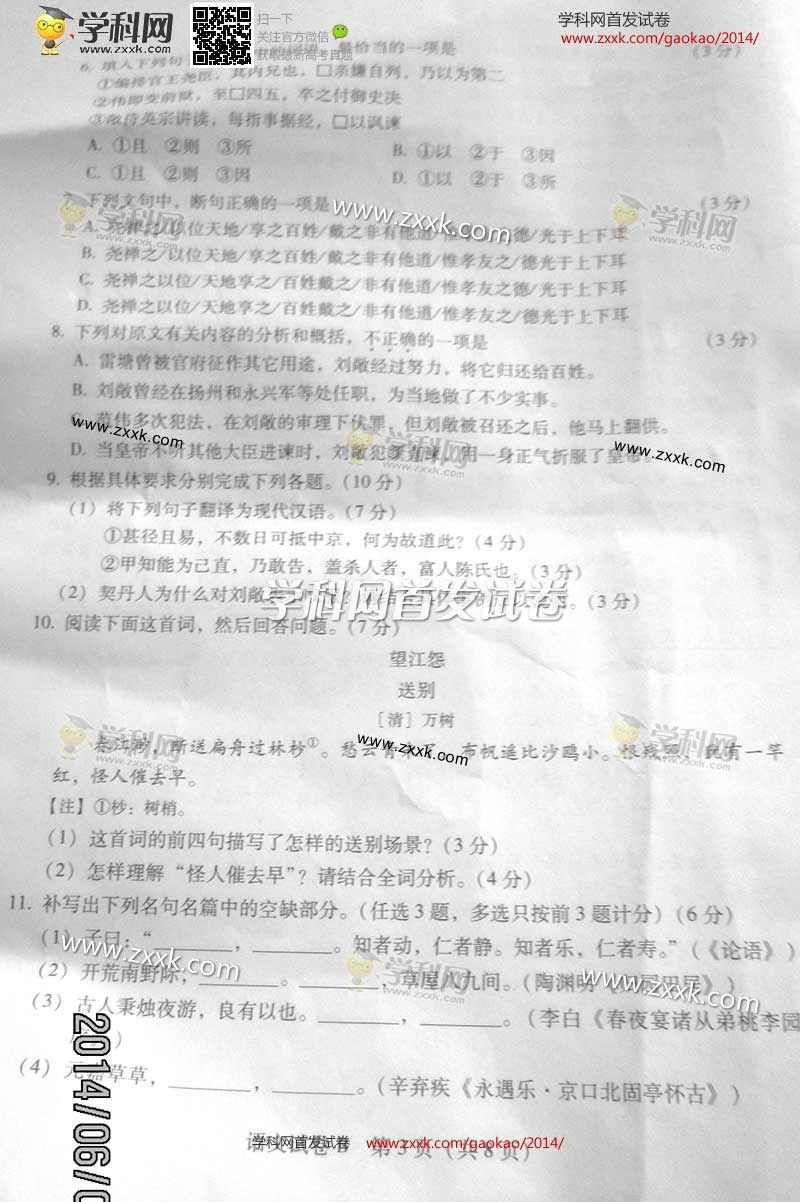 学科网
www.zxxk.com
扫一下
关注官方微信
获取最新高考真题
学科网首发试卷
www.zxxk.com/gaokao/2014/
6. 填入下列句 最恰当的一项是 (3分)
①编排官王尧臣，其内兄也，□亲嫌自列，乃以为第二
②伟即变前狱，至□四五，卒之付御史决
③敞侍英宗讲读，每指事据经，□以讽谏
A. ①且 ②则 ③所
B. ①以 ②于 ③因
C. ①且 ②则 ③因
D. ①以 ②于 ③所
7. 下列文句中，断句正确的一项是 (3分)
A. 尧禅之/以位天地/享之百姓/戴之非有他道/惟孝友之/德/光于上下耳
B. 尧禅之/以位天地/享之百姓/戴之非有他道/惟孝友之德/光于上下耳
C. 尧禅之以位/天地享之/百姓戴之/非有他道/惟孝友之/德/光于上下耳
D. 尧禅之以位/天地享之/百姓戴之/非有他道/惟孝友之德/光于上下耳
学科网
www.zxxk.com
www.zxxk.com
学科网
www.zxxk.com
8. 下列对原文有关内容的分析和概括，不正确的一项是 (3分)
A. 雷塘曾被官府征作其它用途，刘敞经过努力，将它归还给百姓。
B. 刘敞曾经在扬州和永兴军等处任职，为当地做了不少实事。
C. 范伟多次犯法，在刘敞的审理下伏罪，但刘敞被召还之后，他马上翻供。
D. 当皇帝不听其他大臣进谏时，刘敞犯颜直谏，用一身正气折服了皇帝。
www.zxxk.com
学科网
www.zxxk.com
9. 根据具体要求分别完成下列各题。(10分)
(1) 将下列句子翻译为现代汉语。(7分)
①甚径且易，不数日可抵中京，何为故道此？(4分)
②甲知能为己直，乃敢告，盖杀人者，富人陈氏也。(3分)
(2) 契丹人为什么对刘敞 (3分)
学科网首发试卷
10. 阅读下面这首词，然后回答问题。(7分)
望江怨
送别
[清] 万树
春江渺，断送扁舟过林杪①。愁云青 布帆遥比沙鸥小。恨残 犹有一竿
红，怪人催去早。
学科网
www.zxxk.com
www.zxxk.com
学科网
www.zxxk.com
【注】①杪：树梢。
(1) 这首词的前四句描写了怎样的送别场景？(3分)
(2) 怎样理解“怪人催去早”？请结合全词分析。(4分)
11. 补写出下列名句名篇中的空缺部分。(任选3题，多选只按前3题计分) (6分)
(1) 子曰：“________，________。知者动，仁者静。知者乐，仁者寿。”(《论语》)
(2) 开荒南野际，________。________，草屋八九间。(陶渊明
(3) 古人秉烛夜游，良有以也。________，________。(李白《春夜宴诸从弟桃李园
(4) 元嘉草草，________，________。(辛弃疾《永遇乐·京口北固亭怀古》)
www.zxxk.com
学科网
www.zxxk.com
www.zxxk.com
2014/06/0
语文试卷B 第3页 (共8页)
学科网首发试卷
www.zxxk.com/gaokao/2014/